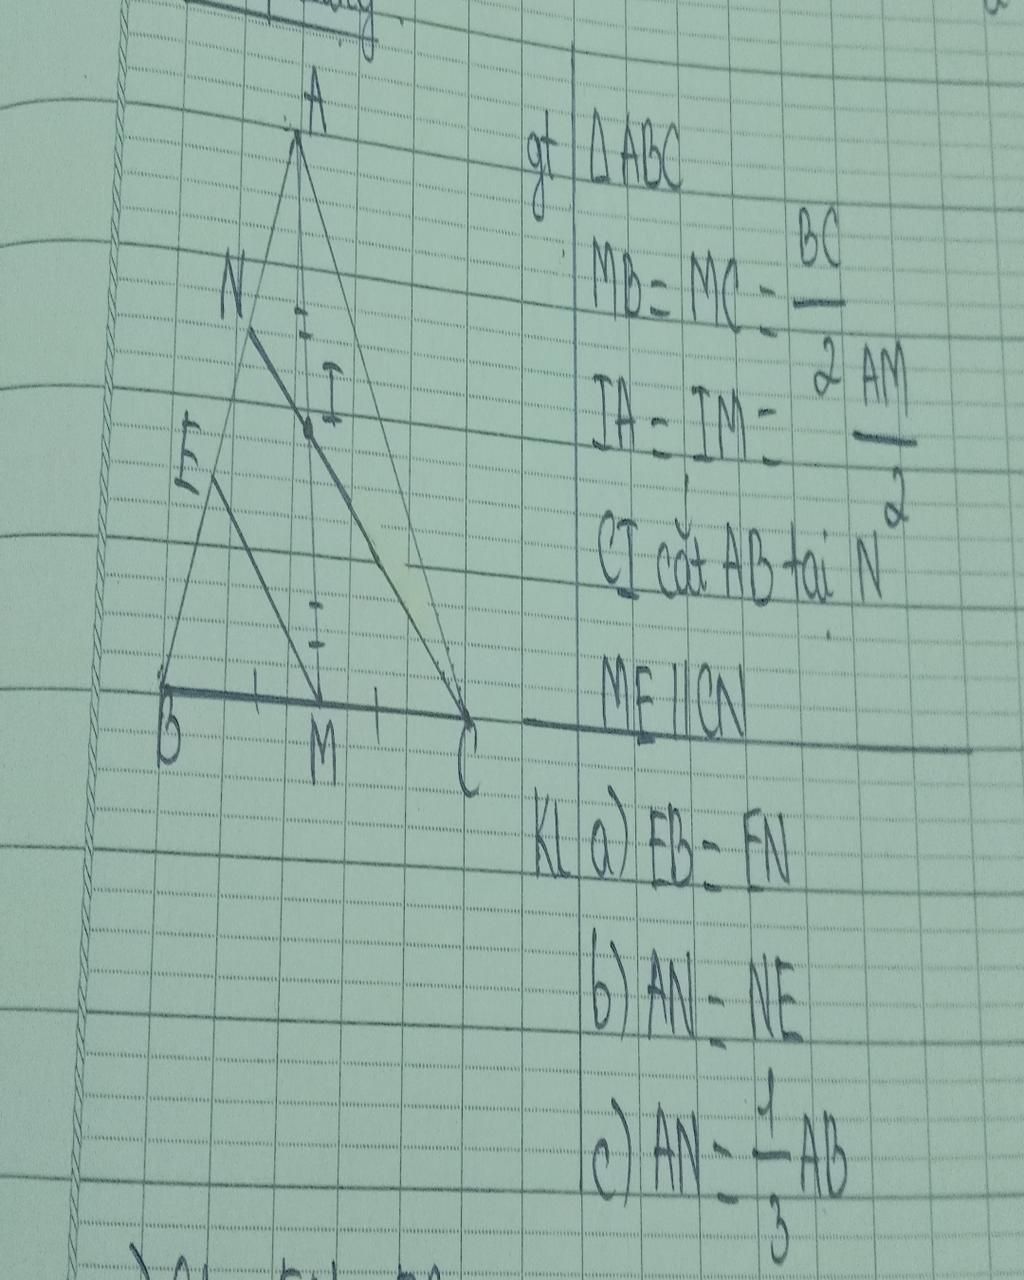 A
N
I
E
B
M
C
gt ΔABC
MB = MC = BC/2
IA = IM = AM/2
CI cắt AB tại N
ME // CN
KL a) EB = EN
b) AN = NE
c) AN = 1/3 AB